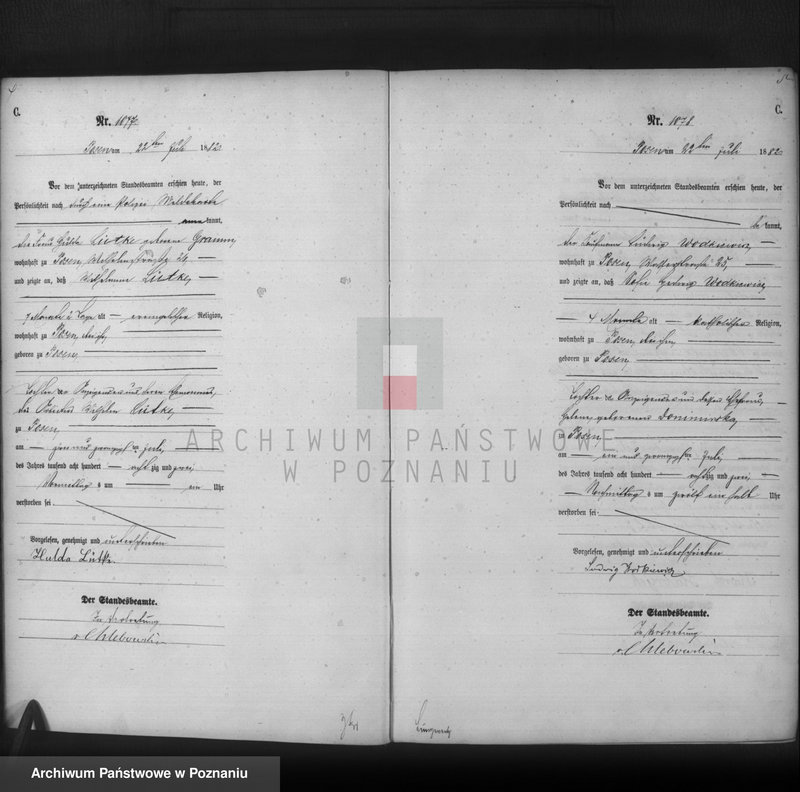 C.
Nr. 1877
Posen am 22ten Juli 1882
Vor dem unterzeichneten Standesbeamten erschien heute, der
Persönlichkeit nach durch eine Polizei Meldekarte
kannt,
die Frau Hulda Lütke geborene Gramm,
wohnhaft zu Posen, Wilhelmstraße 24
und zeigte an, daß Wilhelmine Lütke,
7 Monate 2 Tage alt evangelischer Religion,
wohnhaft zu Posen,
geboren zu Posen,
Tochter der Anzeigenden und deren Ehemannes,
Wilhelm Lütke,
zu Posen,
am Juli,
des Jahres tausend acht hundert achtzig und zwei,
Vormittag s um ein Uhr
verstorben sei.
Vorgelesen, genehmigt und unterschrieben
Hulda Lütke.
Der Standesbeamte.
In Vertretung
C.
Nr. 1878
Posen am 22ten Juli 1882
Vor dem unterzeichneten Standesbeamten erschien heute, der
Persönlichkeit nach
be kannt,
der Kaufmann Ludwig Wodkiewicz,
wohnhaft zu Posen, Wasserstraße 25,
und zeigte an, daß Hedwig Wodkiewicz,
4 Monate alt katholischer Religion,
wohnhaft zu Posen,
geboren zu Posen,
Tochter des Anzeigenden und dessen Ehefrau,
geborenen Dominirska,
zu Posen
am ein und zwanzigsten Juli,
des Jahres tausend acht hundert achtzig und zwei,
Nachmittag s um Uhr
verstorben sei.
Vorgelesen, genehmigt und unterschrieben
Ludwig Wodkiewicz
Der Standesbeamte.
In Vertretung
ARCHIWUM PAŃSTWOWE
W POZNANIU
Archiwum Państwowe w Poznaniu